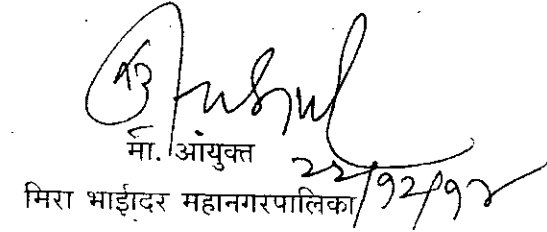 मा. आयुक्त
२२/१२/१२
मिरा भाईंदर महानगरपालिका